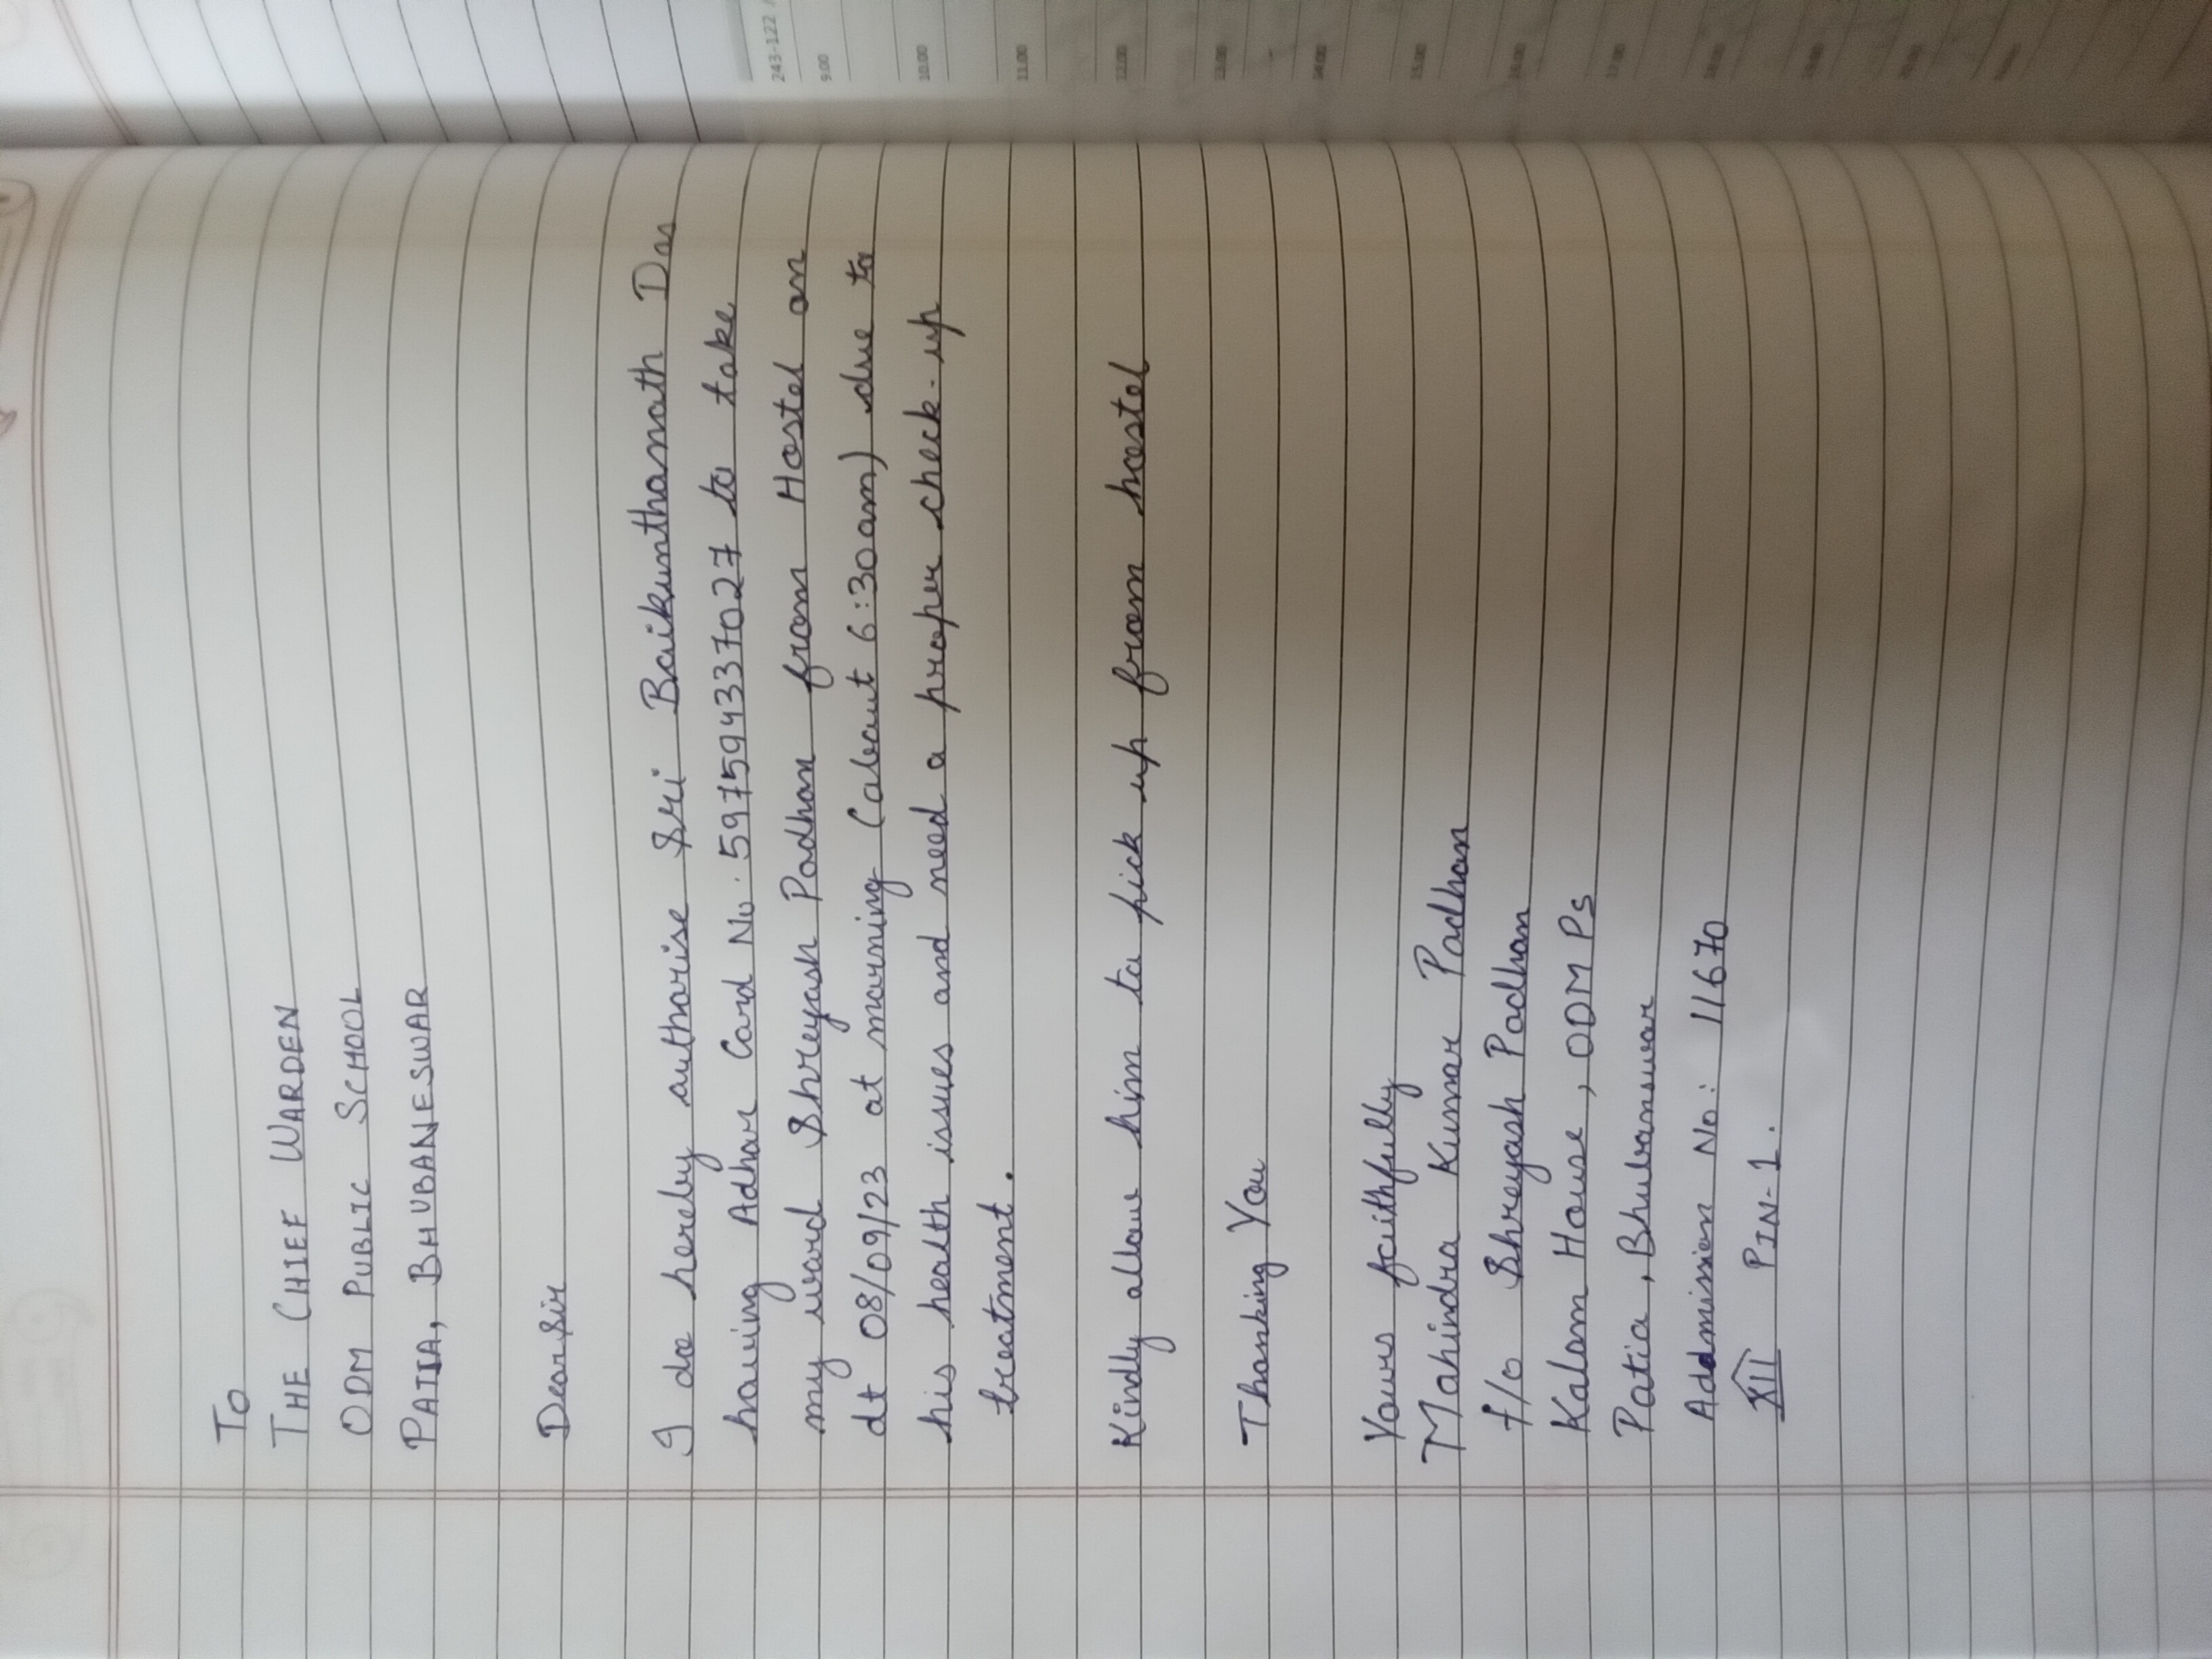 To
THE CHIEF WARDEN
ODM PUBLIC SCHOOL
PATIA, BHUBANESWAR
Dear Sir
I do hereby authorise Sri Baikunthanath Das
having Adhar Card No. 597594337027 to take
my ward Shreyash Padhan from Hostel on
dt 08/09/23 at morning (about 6:30am) due to
his health issues and need a proper check-up
treatment.
Kindly allow him to pick up from hostel
Thanking You
Yours faithfully
Mahindra Kumar Padhan
f/o Shreyash Padhan
Kalam House, ODM PS
Patia, Bhubanswar
Addmission No: 11670
XII PIN-1.
243-122 /
9.00
10.00
11.00
12.00
13.00
14.00
15.00
16.00
17.00
18.00
19.00